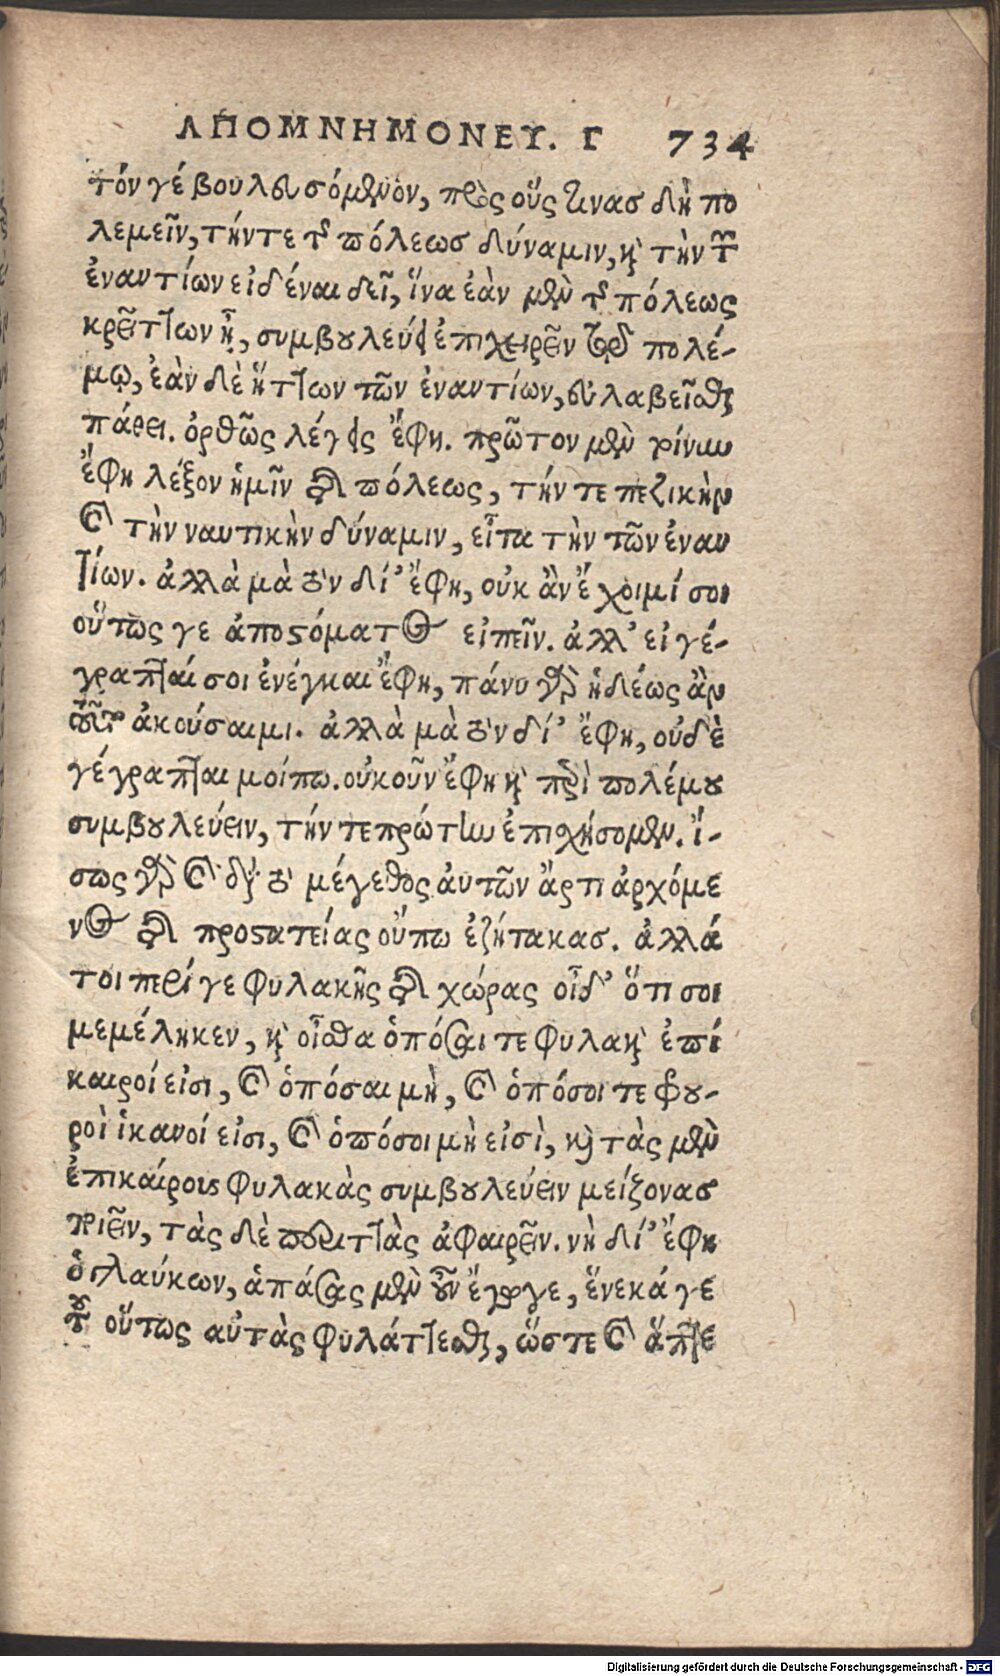 ΑΠΟΜΝΗΜΟΝΕΥ. Γ 734
τόν γέ βουλευσόμενον, πρὸς οὕς τινας δὴ πο
λεμεῖν, τήν τε τῆς πόλεως δύναμιν, καὶ τὴν τῶν
ἐναντίων εἰδέναι δεῖ, ἵνα ἐὰν μὲν ἡ τῆς πόλεως
κρείττων ᾖ, συμβουλεύῃ ἐπιχειρεῖν τῷ πολέ-
μῳ, ἐὰν δὲ ἥττων τῶν ἐναντίων, εὐλαβεῖσθαι
πείθει. ὀρθῶς λέγεις ἔφη. πρῶτον μὲν τοίνυν
ἔφη λέξον ἡμῖν τῆς πόλεως, τήν τε πεζικὴν
καὶ τὴν ναυτικὴν δύναμιν, εἶτα τὴν τῶν ἐναν
τίων. ἀλλὰ μὰ τὸν δί' ἔφη, οὐκ ἂν ἔχοιμί σοι
οὕτως γε ἀποστόματος εἰπεῖν. ἀλλ' εἰ γέ-
γραπταί σοι ἐνέγκαι ἔφη, πάνυ γὰρ ἡδέως ἂν
τοῦτο ἀκούσαιμι. ἀλλὰ μὰ τὸν δί' ἔφη, οὐδὲ
γέγραπταί μοί πω. οὐκοῦν ἔφη καὶ περὶ πολέμου
συμβουλεύειν, τήν τε πρώτην ἐπισχήσομεν. ἴ-
σως γὰρ καὶ διὰ τὸ μέγεθος αὐτῶν ἄρτι ἀρχόμε
νος τῆς προστατείας οὔπω ἐζήτακας. ἀλλά
τοι περί γε φυλακῆς τῆς χώρας οἶδ' ὅτι σοι
μεμέληκεν, καὶ οἶσθα ὁπόσαι τε φυλακαὶ ἐπί
καιροί εἰσι, καὶ ὁπόσαι μὴ, καὶ ὁπόσοι τε φρου-
ροὶ ἱκανοί εἰσι, καὶ ὁπόσοι μὴ εἰσὶ, καὶ τὰς μὲν
ἐπικαίρους φυλακὰς συμβουλεύειν μείζονας
ποιεῖν, τὰς δὲ περιττὰς ἀφαιρεῖν. νὴ δί' ἔφη
ὁ γλαύκων, ἁπάσας μὲν οὖν ἔγωγε, ἕνεκά γε
τοῦ οὕτως αὐτὰς φυλάττεσθαι, ὥστε καὶ ἅπτε
Digitalisierung gefördert durch die Deutsche Forschungsgemeinschaft - DFG